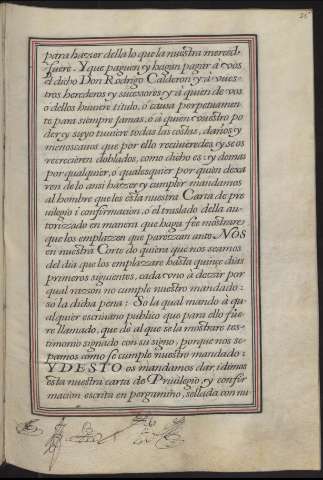 para hazer della lo que la nuestra merced
fuere. Y que paguen, y hagan pagar à vòs
el dicho Don Rodrigo Calderon, y à vues=
tros herederos y sucessores, y à quien de vos
ò dellos huuiere titulo, ò causa perpetuamen=
te para siempre jamas, ò à quien vuestro po
der, y suyo tuuiere todas las costas, daños, y
menoscauos que por ello reciuieredes, y se os
recrecieren doblados, como dicho es: y demas
por qualquier, ò qualesquier por quien dexa
ren de lo ansi hazer, y cumplir mandamos
al hombre que les esta nuestra Carta de pre
uilegio i confirmacion, ò el traslado della au=
torizzado en manera que haga fee mostrare,
que los emplazzen que parezcan ante NOS
en nuestra Corte do quiera que nos seamos
del dia que los emplazzare hasta quinçe dias
primeros siguientes, cada vno à dezir por
qual razzon no cumple nuestro mandado:
so la dicha pena: So la qual mando à qu=
alquier escriuano publico que para ello fue=
re llamado, que dè al que se la mostrare tes=
timonio signado con su signo, porque nos se=
pamos como se cumple nuestro mandado:
Y DESTO os mandamos dar, i dimos
esta nuestra carta de Priuilegio, y confir
macion escrita en pergamino, sellada con nu